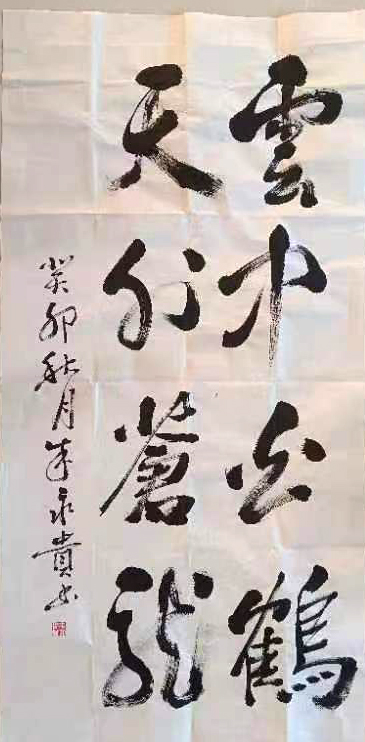 雲中白鶴
天外蒼龍
癸卯秋月朱永貴书